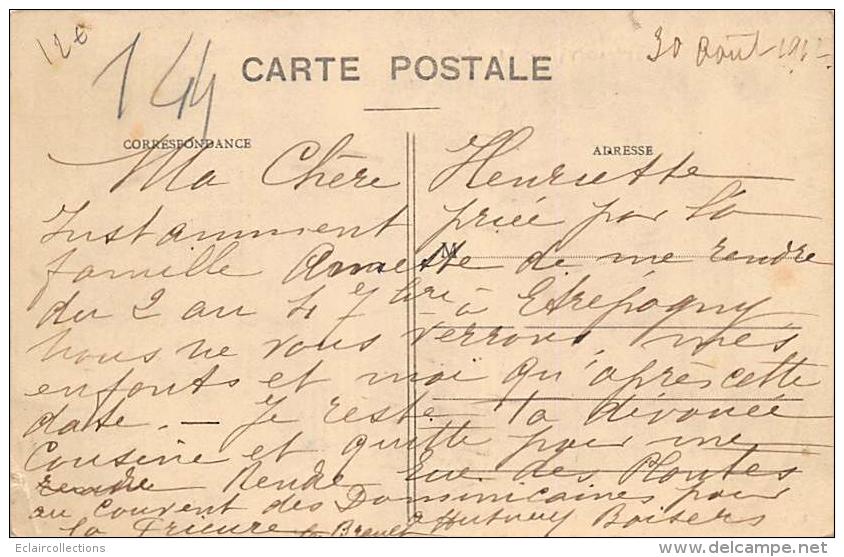 12€
144
30 août 1912
CARTE POSTALE
CORRESPONDANCE
ADRESSE
Ma Chère Henriette
Instamment priée par la
M
famille Amette de me rendre
du 2 au 4 7bre à Etrépagny
nous ne vous verrons, mes
enfants et moi qu'après cette
date. — Je reste ta dévouée
Cousine et quitte pour me
rendre Rendre Rue des Plantes
au Couvent des Dominicaines pour
la Prieure Baisers
Eclaircollections
www.delcampe.net